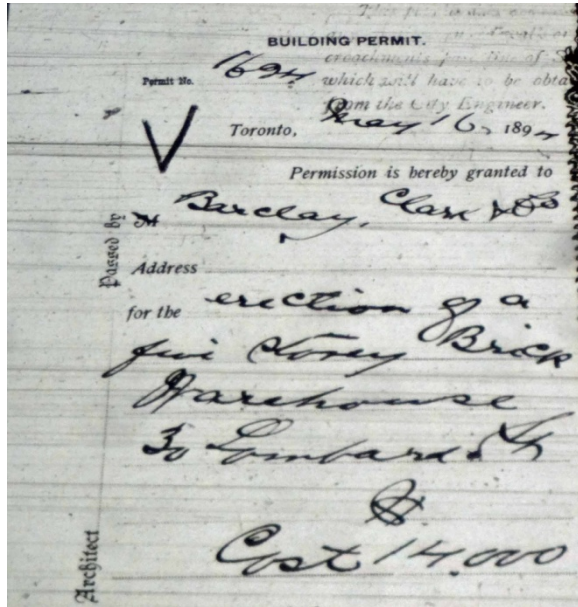 This
BUILDING PERMIT.
croachments
Permit No. 1694
which will have to be obta
from the City Engineer.
Toronto, May 16, 189
Permission is hereby granted to
M Barclay, Clark & Co
Passed by
Address
for the erection of a
five Storey Brick
Warehouse
Lombard St
$
Cost 14.000
Architect